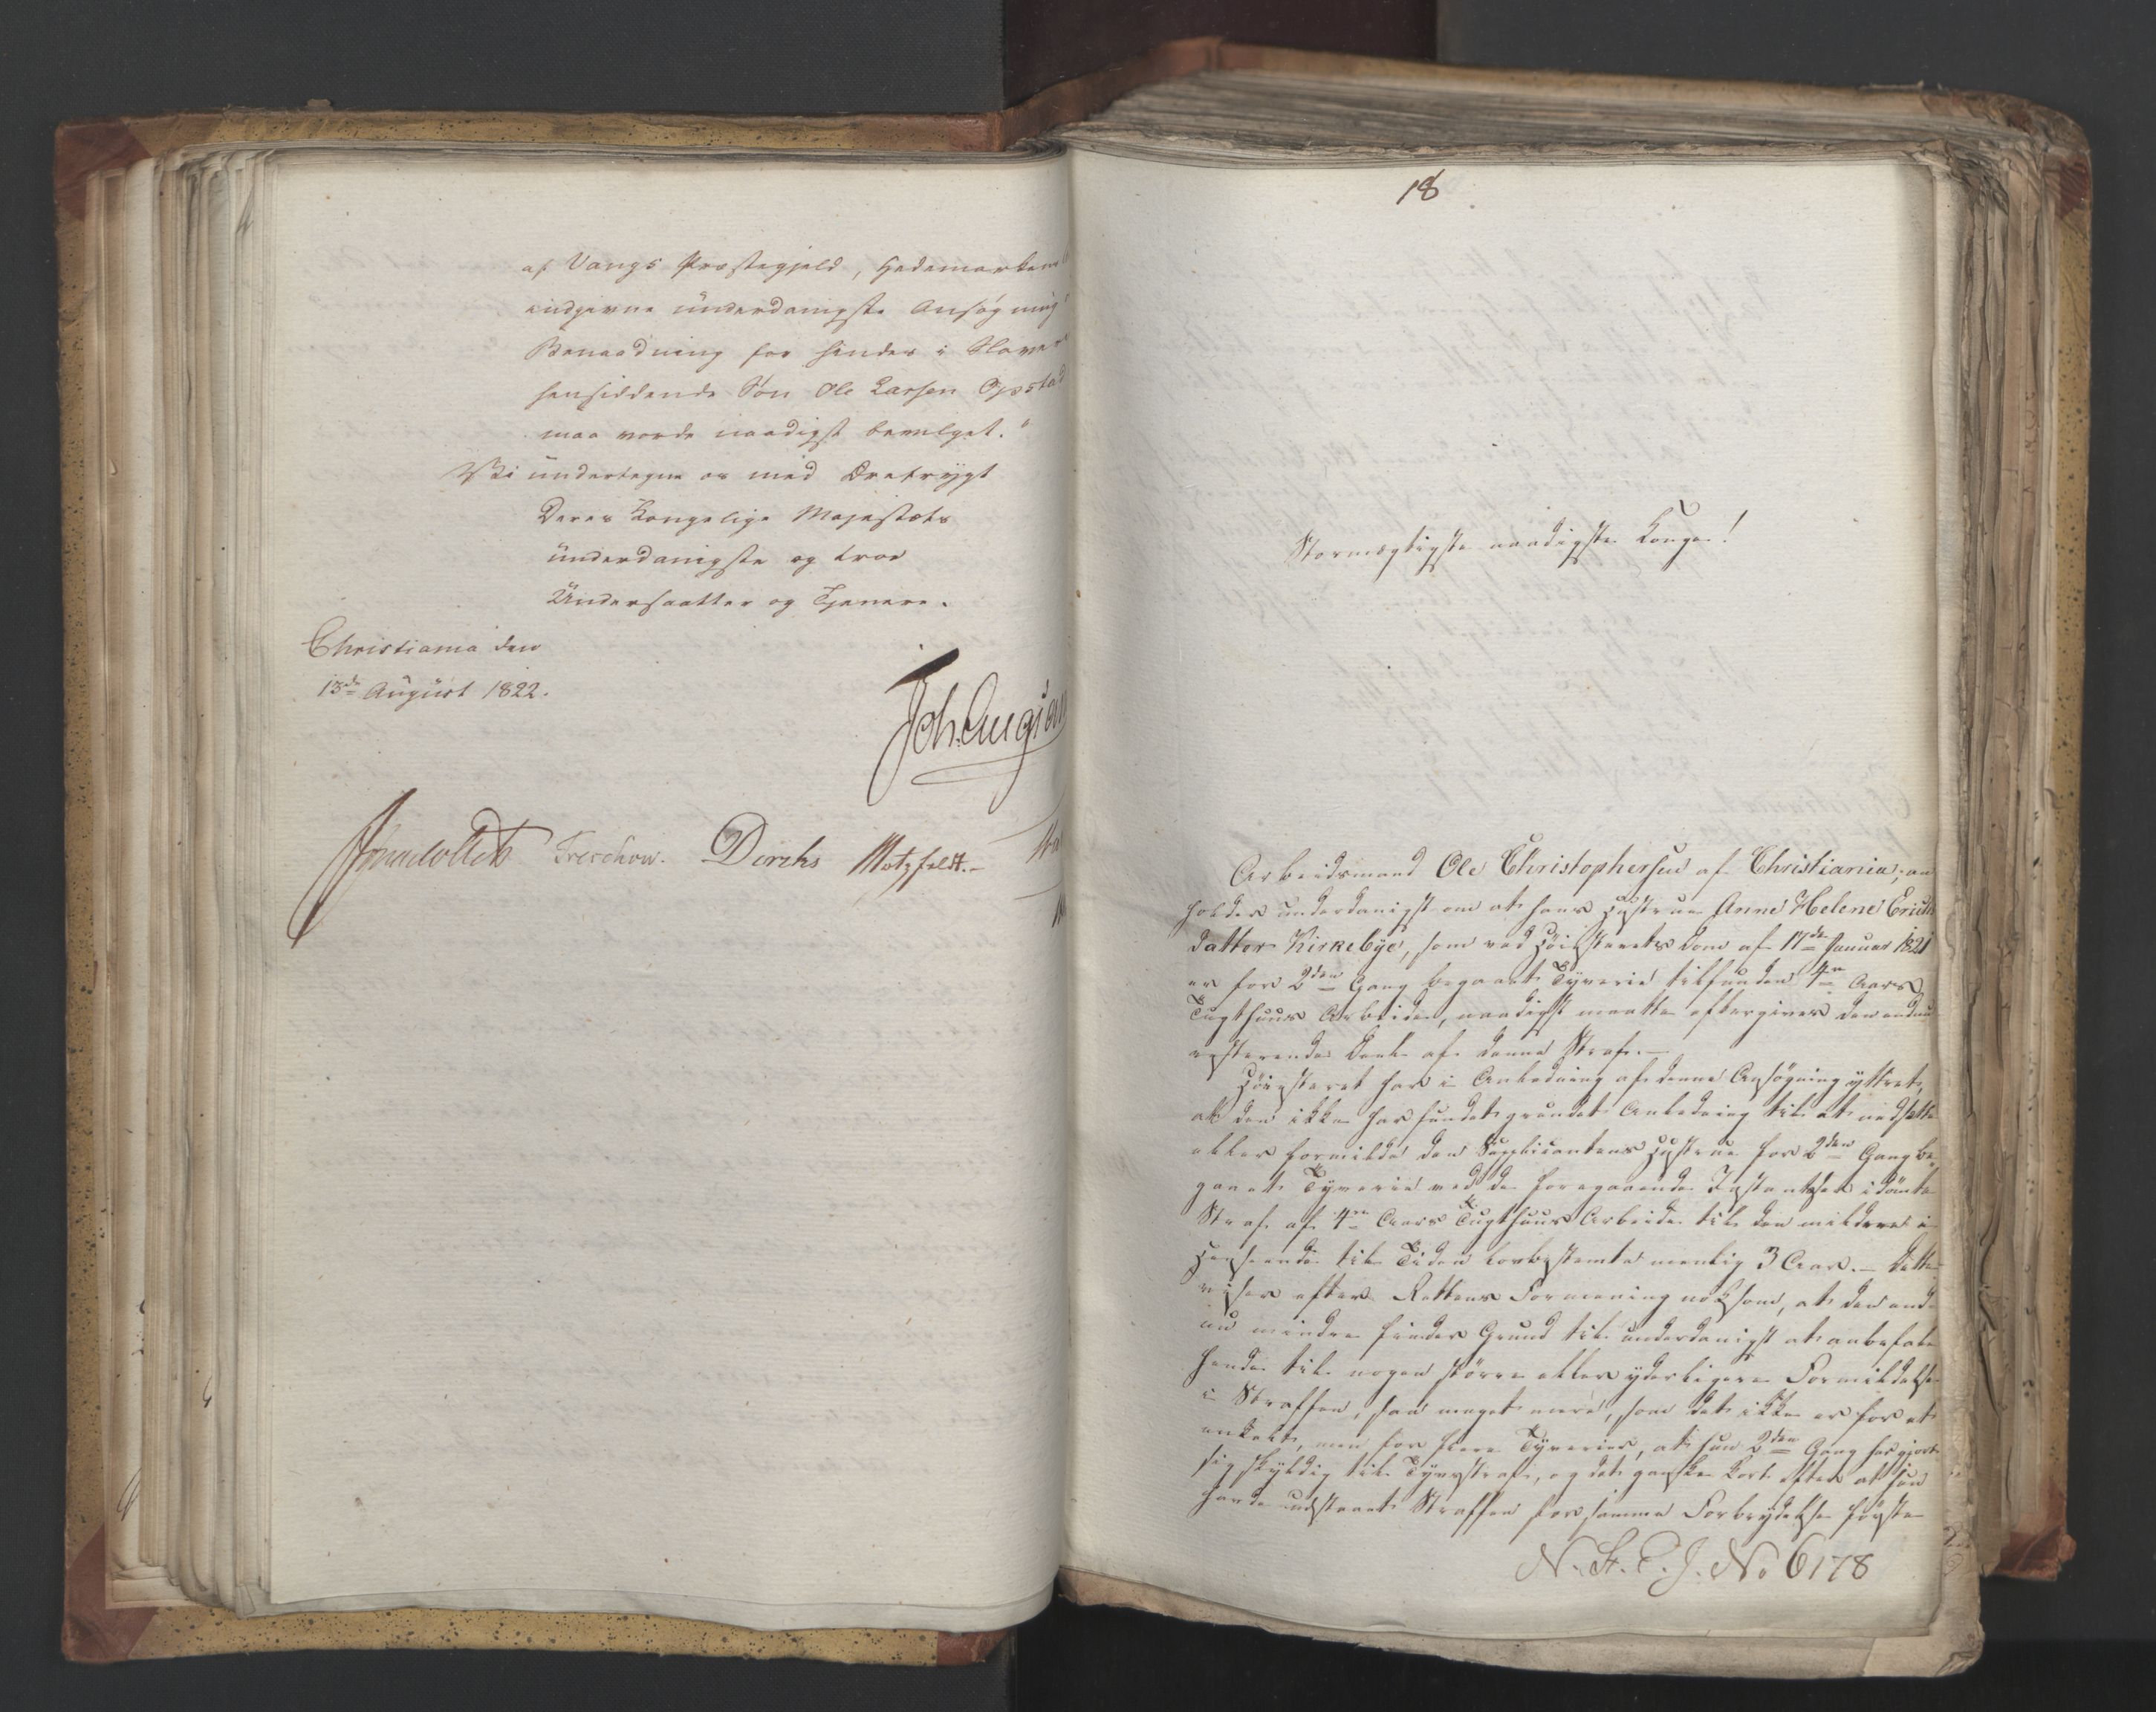 af Vangs Præstegjeld, Hedemarken
indgivne underdanigste Ansøgning
Benaadning for hendes i Slaver
hensiddende Søn Ole Larsen Opstad
maa vorde naadigst bevilget."
Vi undertegne os med Ærefrygt
Deres Kongelige Majestæts
underdanigste og troe
Undersaatter og Tjenere.
Christiania den
13de August 1822.
Treschow. Diriks Motzfeldt.-
18
Stormægtigste naadigste Konge!
Arbeidsmand Ole Christophersen af Christiania, an
holder underdanigst om at hans Hustrue Anne Helene Erichs
datter Kirkebye, som ved Høiesterets Dom af 17de Januar 1821
er for 2den Gang begaaet Tyverie tilfunden 4re Aars
Tugthuus Arbeide, naadigst maatte eftergives den endnu
resterende Deel af denne Straf.—
Høiesteret har i Anledning af denne Ansøgning yttret,
at den ikke har fundet grundet Anledning til at nedsætte
eller formilde den Supplicantens Hustrue for 2den Gang be-
gaaet Tyverie ved de foregaaende Instantser idømte
Straf af 4re Aars Tugthuus Arbeide til den mildere i
Henseende til Tiden lovbestemte nemlig 3 Aar.— Dette
viser efter Rettens Formening noksom, at den end-
nu mindre finder Grund til underdanigst at anbefale
hende til nogen større eller yderligere Formildelse
i Straffen, saa meget mere, som det ikke er for et
enkelt, men for flere Tyverier, at hun 2den Gang har gjort
sig skyldig til Tyvsstraf, og det ganske kort efter at hun
havde udstaaet Straffen for samme Forbrydelse første
N. St. C. J. No 6178